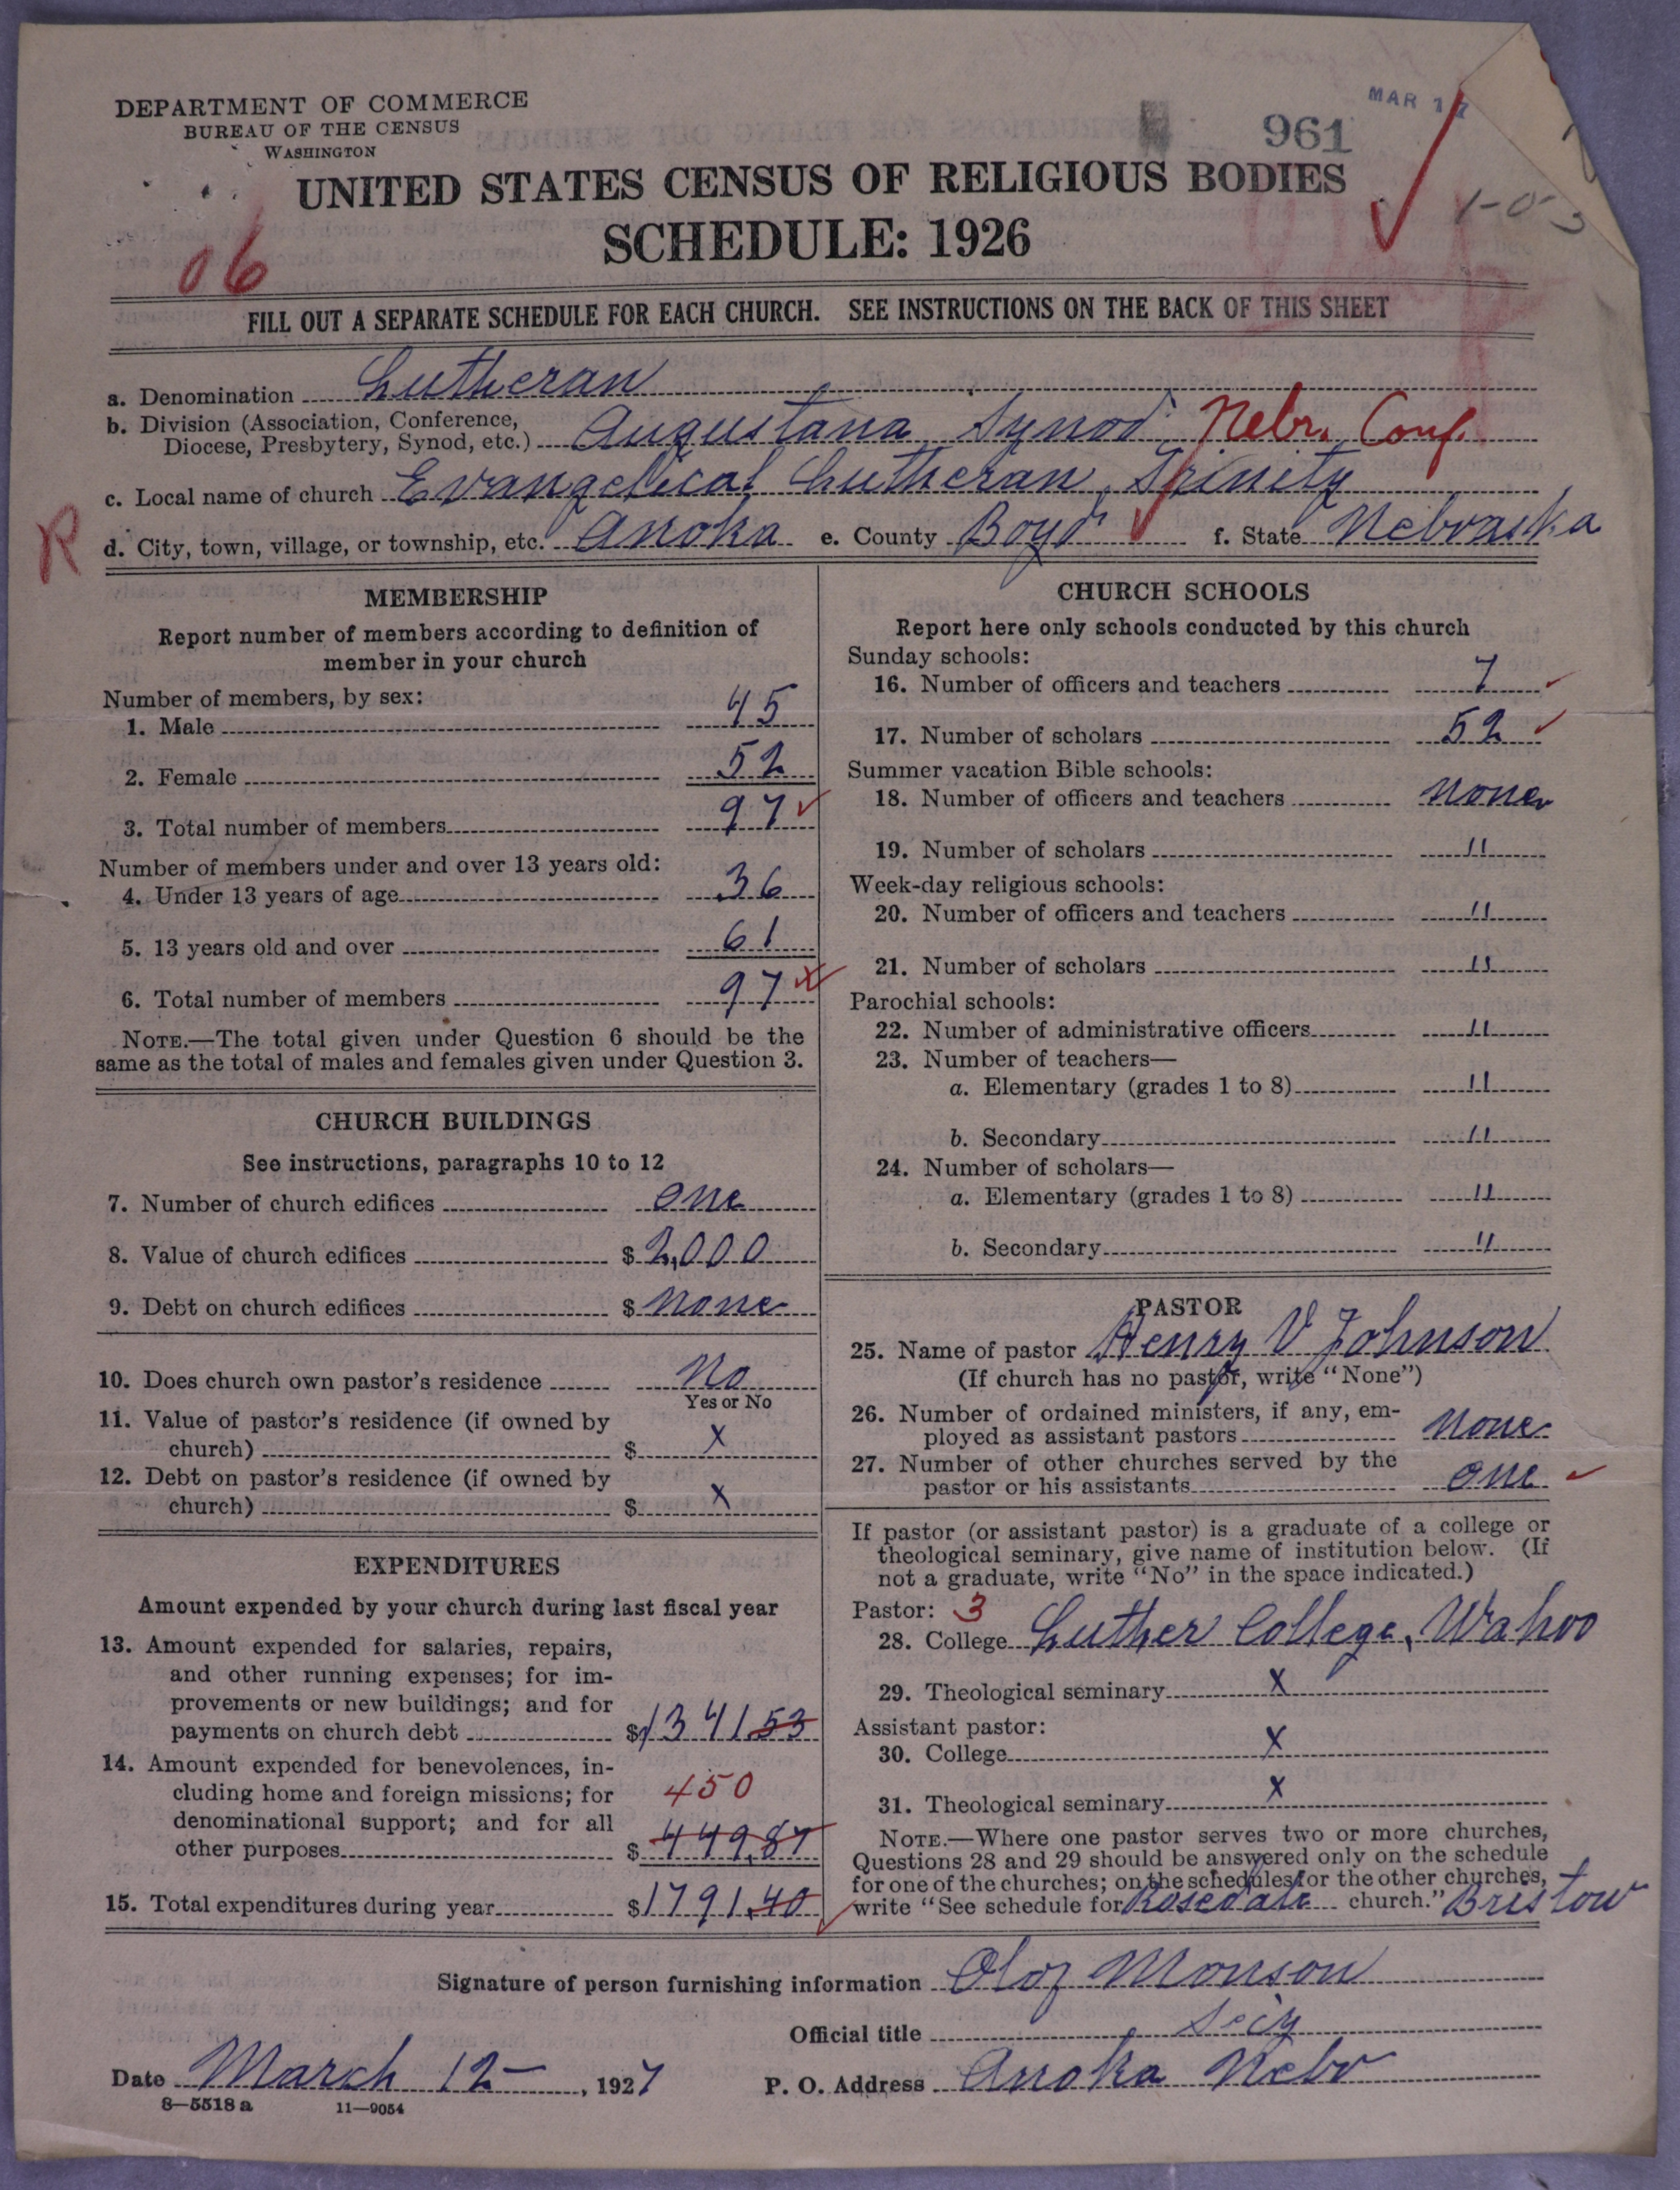 DEPARTMENT OF COMMERCE
BUREAU OF THE CENSUS
WASHINGTON
961
MAR 17
UNITED STATES CENSUS OF RELIGIOUS BODIES
SCHEDULE: 1926
06
FILL OUT A SEPARATE SCHEDULE FOR EACH CHURCH. SEE INSTRUCTIONS ON THE BACK OF THIS SHEET
a. Denomination Lutheran
b. Division (Association, Conference,
Diocese, Presbytery, Synod, etc.) Augustana Synod Nebr. Conf.
c. Local name of church Evangelical Lutheran Trinity
R
d. City, town, village, or township, etc. Anoka e. County Boyd f. State Nebraska
MEMBERSHIP
Report number of members according to definition of
member in your church
Number of members, by sex:
1. Male 45
2. Female 52
3. Total number of members 97
Number of members under and over 13 years old:
4. Under 13 years of age 36
5. 13 years old and over 61
6. Total number of members 97
NOTE.—The total given under Question 6 should be the
same as the total of males and females given under Question 3.
CHURCH BUILDINGS
See instructions, paragraphs 10 to 12
7. Number of church edifices one
8. Value of church edifices $ 2,000
9. Debt on church edifices $ none
10. Does church own pastor's residence No
Yes or No
11. Value of pastor's residence (if owned by
church) $ X
12. Debt on pastor's residence (if owned by
church) $ X
EXPENDITURES
Amount expended by your church during last fiscal year
13. Amount expended for salaries, repairs,
and other running expenses; for im-
provements or new buildings; and for
payments on church debt $1341.53
14. Amount expended for benevolences, in-
cluding home and foreign missions; for 450
denominational support; and for all
other purposes $ 449.87
15. Total expenditures during year $1791.40
CHURCH SCHOOLS
Report here only schools conducted by this church
Sunday schools:
16. Number of officers and teachers 7
17. Number of scholars 52
Summer vacation Bible schools:
18. Number of officers and teachers none
19. Number of scholars "
Week-day religious schools:
20. Number of officers and teachers "
21. Number of scholars "
Parochial schools:
22. Number of administrative officers "
23. Number of teachers—
a. Elementary (grades 1 to 8) "
b. Secondary "
24. Number of scholars—
a. Elementary (grades 1 to 8) "
b. Secondary "
PASTOR
25. Name of pastor Henry V Johnson
(If church has no pastor, write "None")
26. Number of ordained ministers, if any, em-
ployed as assistant pastors none
27. Number of other churches served by the
pastor or his assistants one
If pastor (or assistant pastor) is a graduate of a college or
theological seminary, give name of institution below. (If
not a graduate, write "No" in the space indicated.)
Pastor: 3
28. College Luther College, Wahoo
29. Theological seminary X
Assistant pastor:
30. College X
31. Theological seminary X
NOTE.—Where one pastor serves two or more churches,
Questions 28 and 29 should be answered only on the schedule
for one of the churches; on the schedules for the other churches,
write "See schedule for Rosedale church." Bristow
Signature of person furnishing information Olof Monson
Official title Secy
Date March 12, 1927 P. O. Address Anoka Nebr
8—5518 a 11—9054